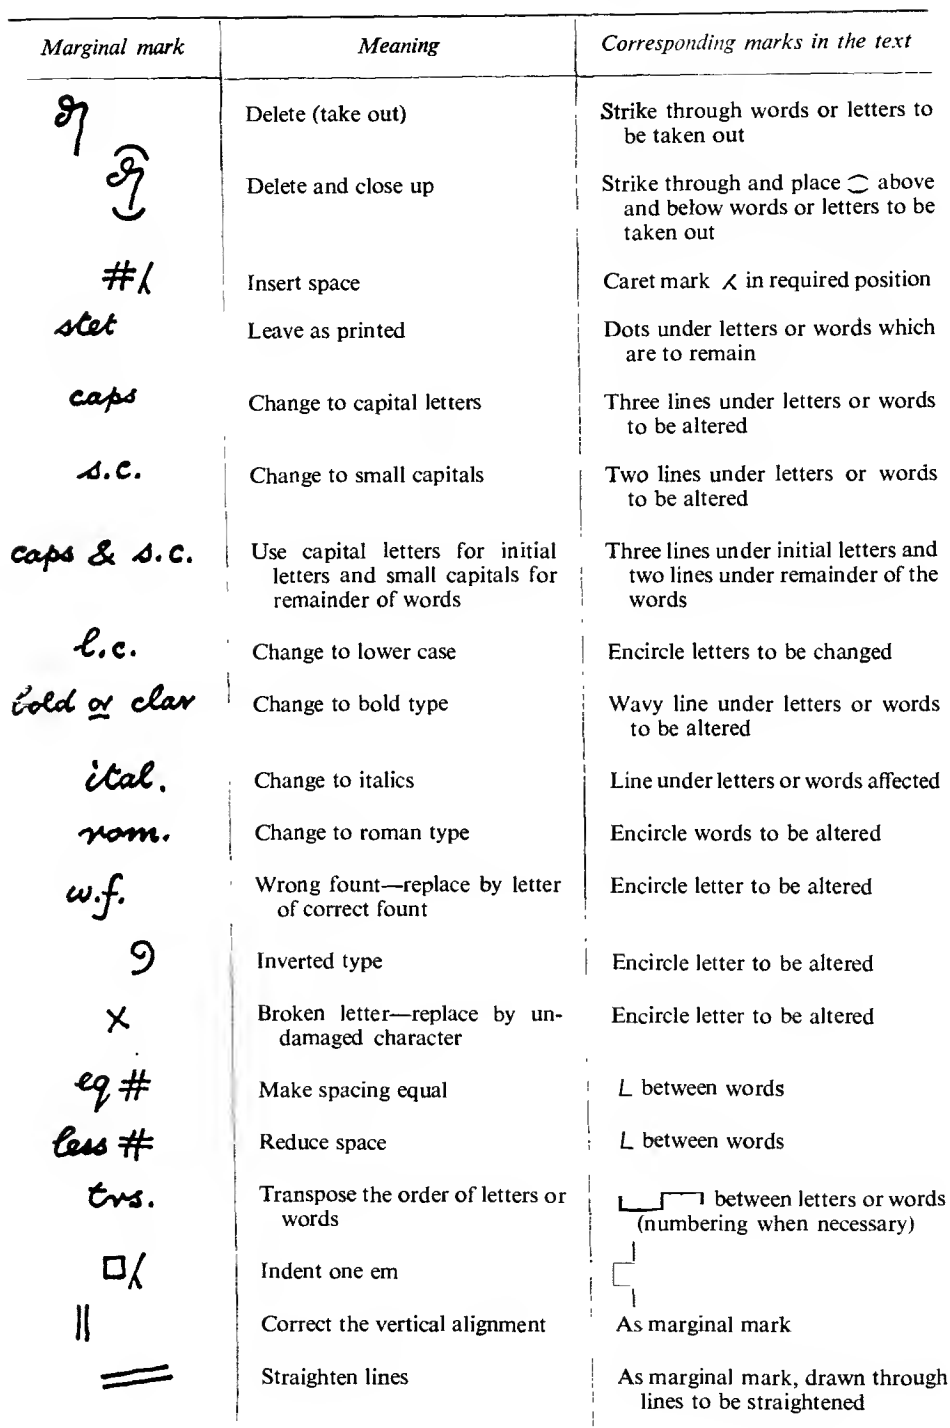 Marginal mark Meaning Corresponding marks in the text
Delete (take out) Strike through words or letters to
be taken out
Delete and close up Strike through and place ⁐ above
and below words or letters to be
taken out
#⁁ Insert space Caret mark ⁁ in required position
stet Leave as printed Dots under letters or words which
are to remain
caps Change to capital letters Three lines under letters or words
to be altered
s.c. Change to small capitals Two lines under letters or words
to be altered
caps & s.c. Use capital letters for initial Three lines under initial letters and
letters and small capitals for two lines under remainder of the
remainder of words words
l.c. Change to lower case Encircle letters to be changed
bold or clar Change to bold type Wavy line under letters or words
to be altered
ital. Change to italics Line under letters or words affected
rom. Change to roman type Encircle words to be altered
w.f. Wrong fount—replace by letter Encircle letter to be altered
of correct fount
Inverted type Encircle letter to be altered
× Broken letter—replace by un- Encircle letter to be altered
damaged character
eq # Make spacing equal L between words
less # Reduce space L between words
trs. Transpose the order of letters or between letters or words
words (numbering when necessary)
□⁁ Indent one em
|| Correct the vertical alignment As marginal mark
Straighten lines As marginal mark, drawn through
lines to be straightened